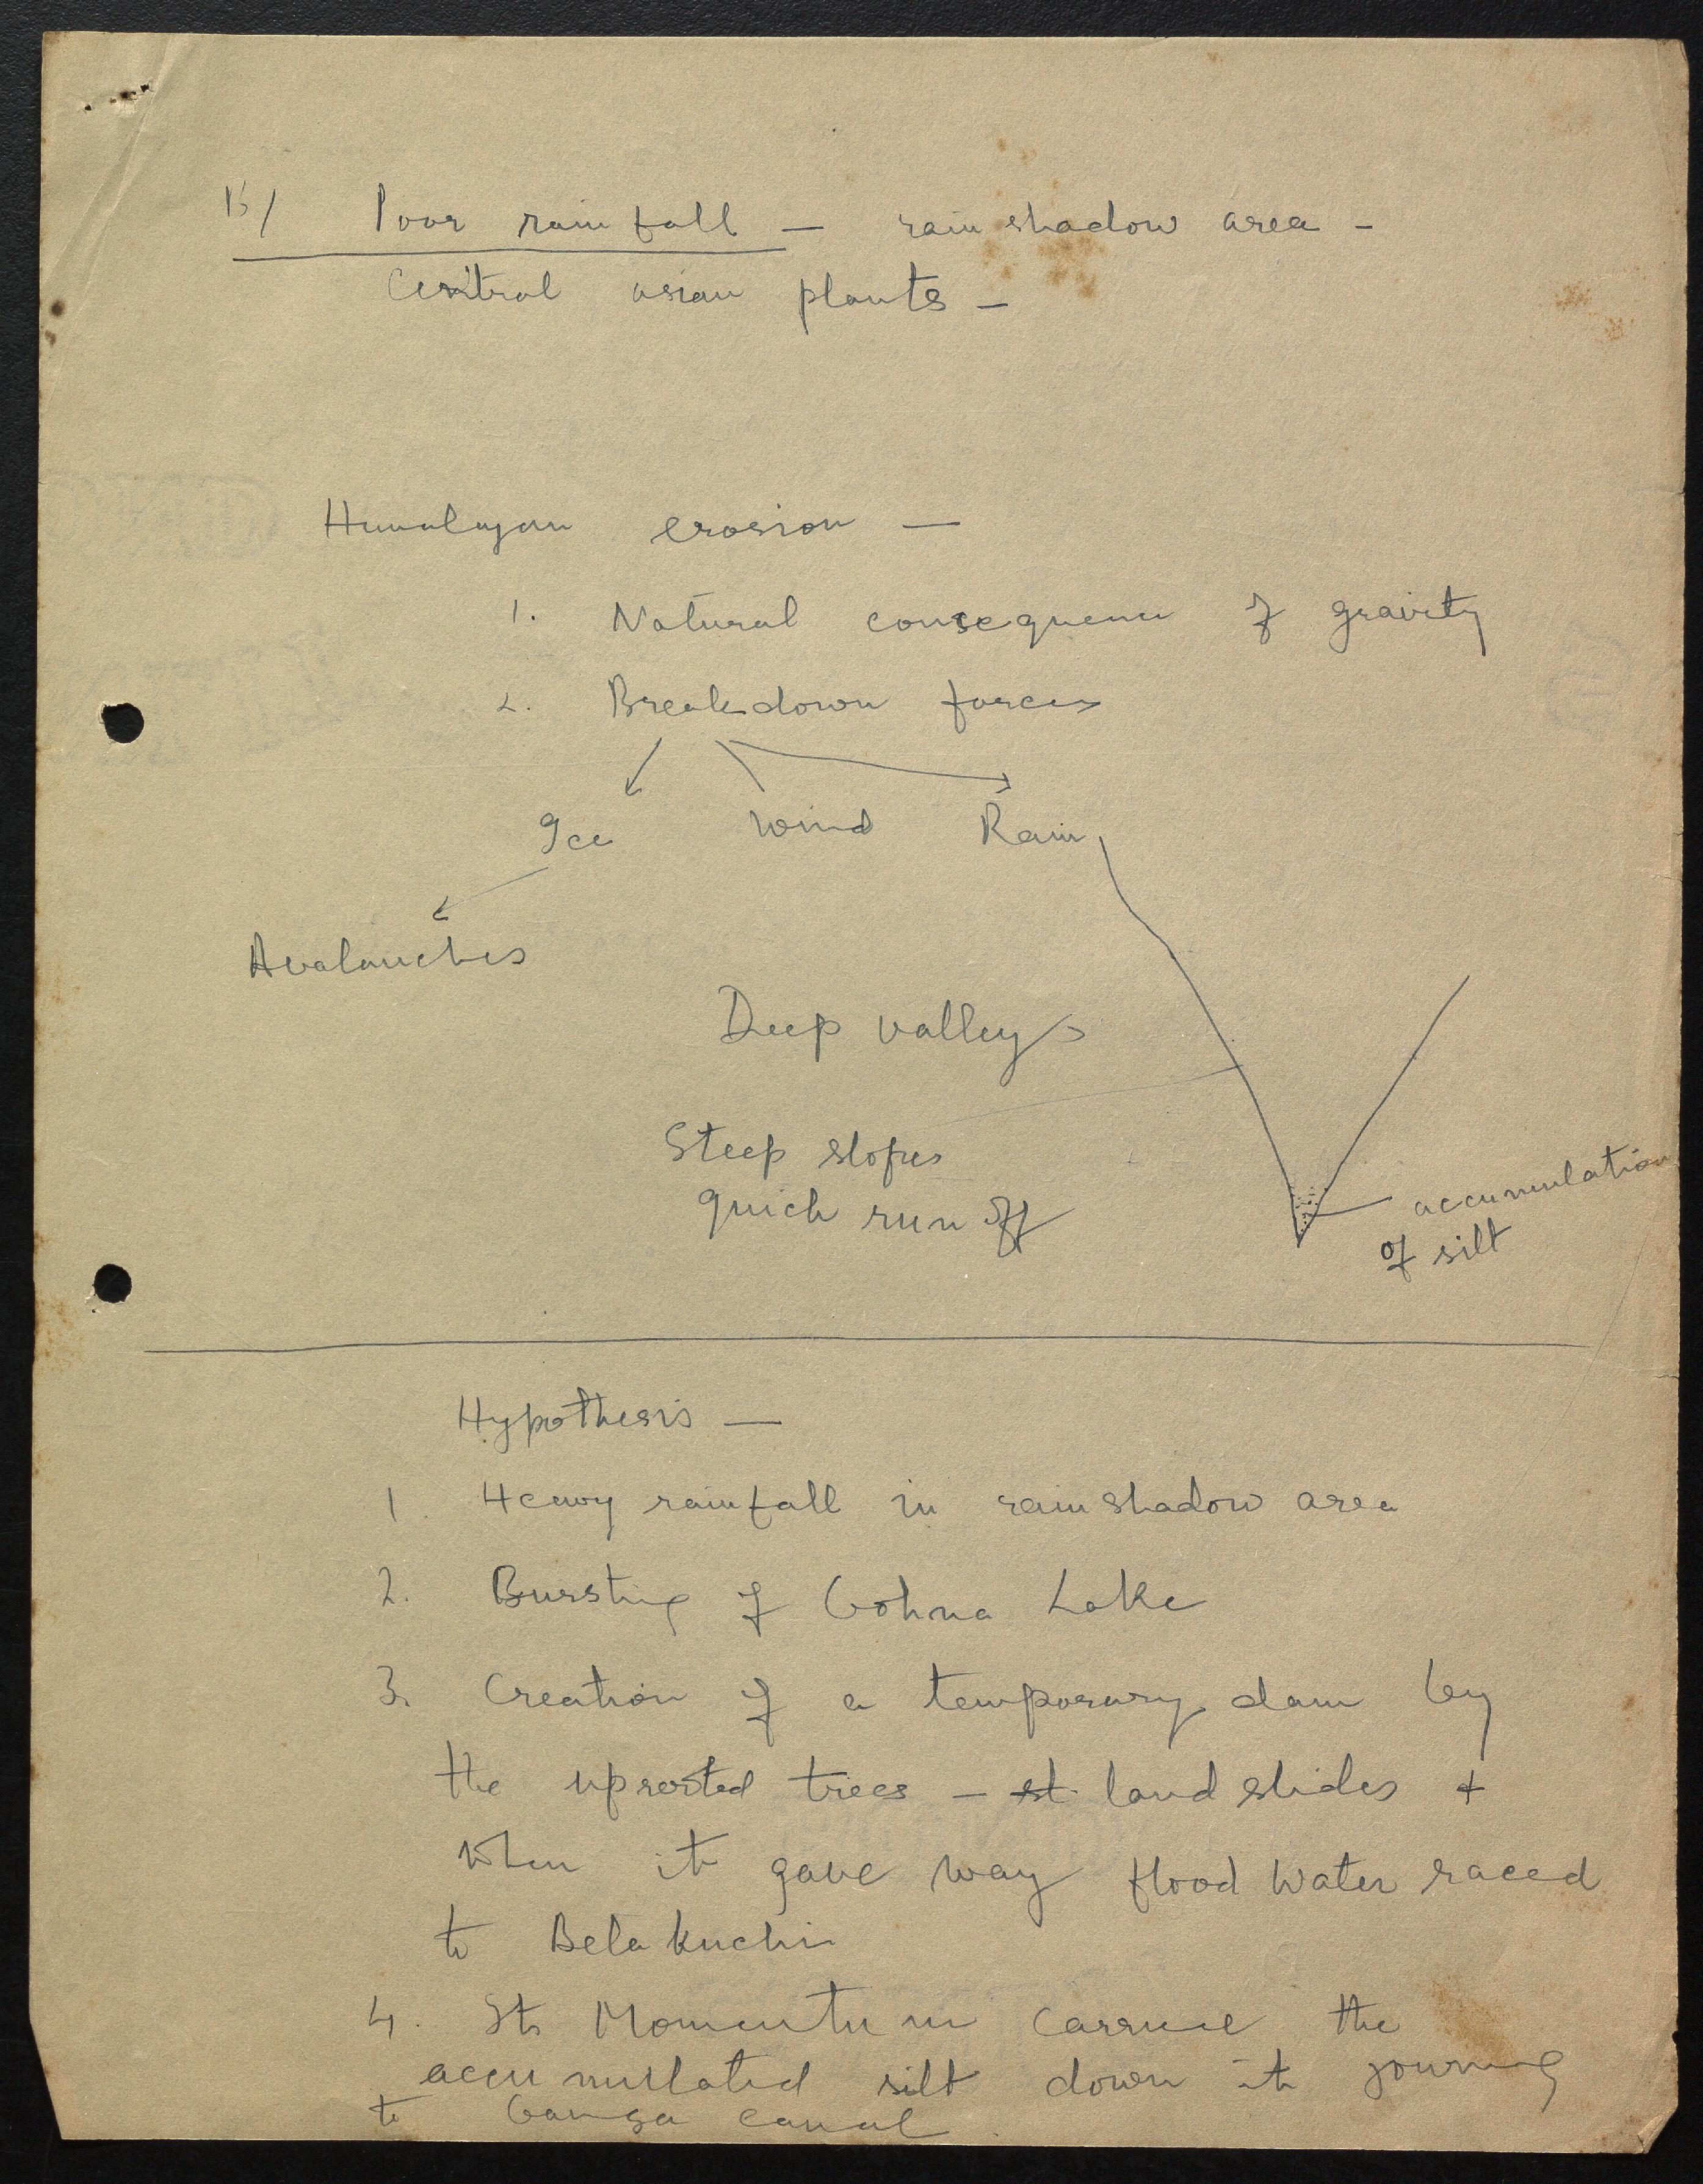 B/ Poor rainfall — rain shadow area -
Central asian plants —
Himalayan erosion —
1. Natural consequence of gravity
2. Breakdown forces
Ice Wind Rain
Avalanches
Deep valleys
Steep slopes
quick run off
accumulation
of silt
Hypothesis —
1 Heavy rainfall in rain shadow area
2. Bursting of Gohna Lake
3. Creation of a temporary dam by
the uprooted trees — st land slides +
when it gave way flood water raced
to Belakuchi
4. Its Momentum carried the
accumulated silt down it journey
to Ganga canal